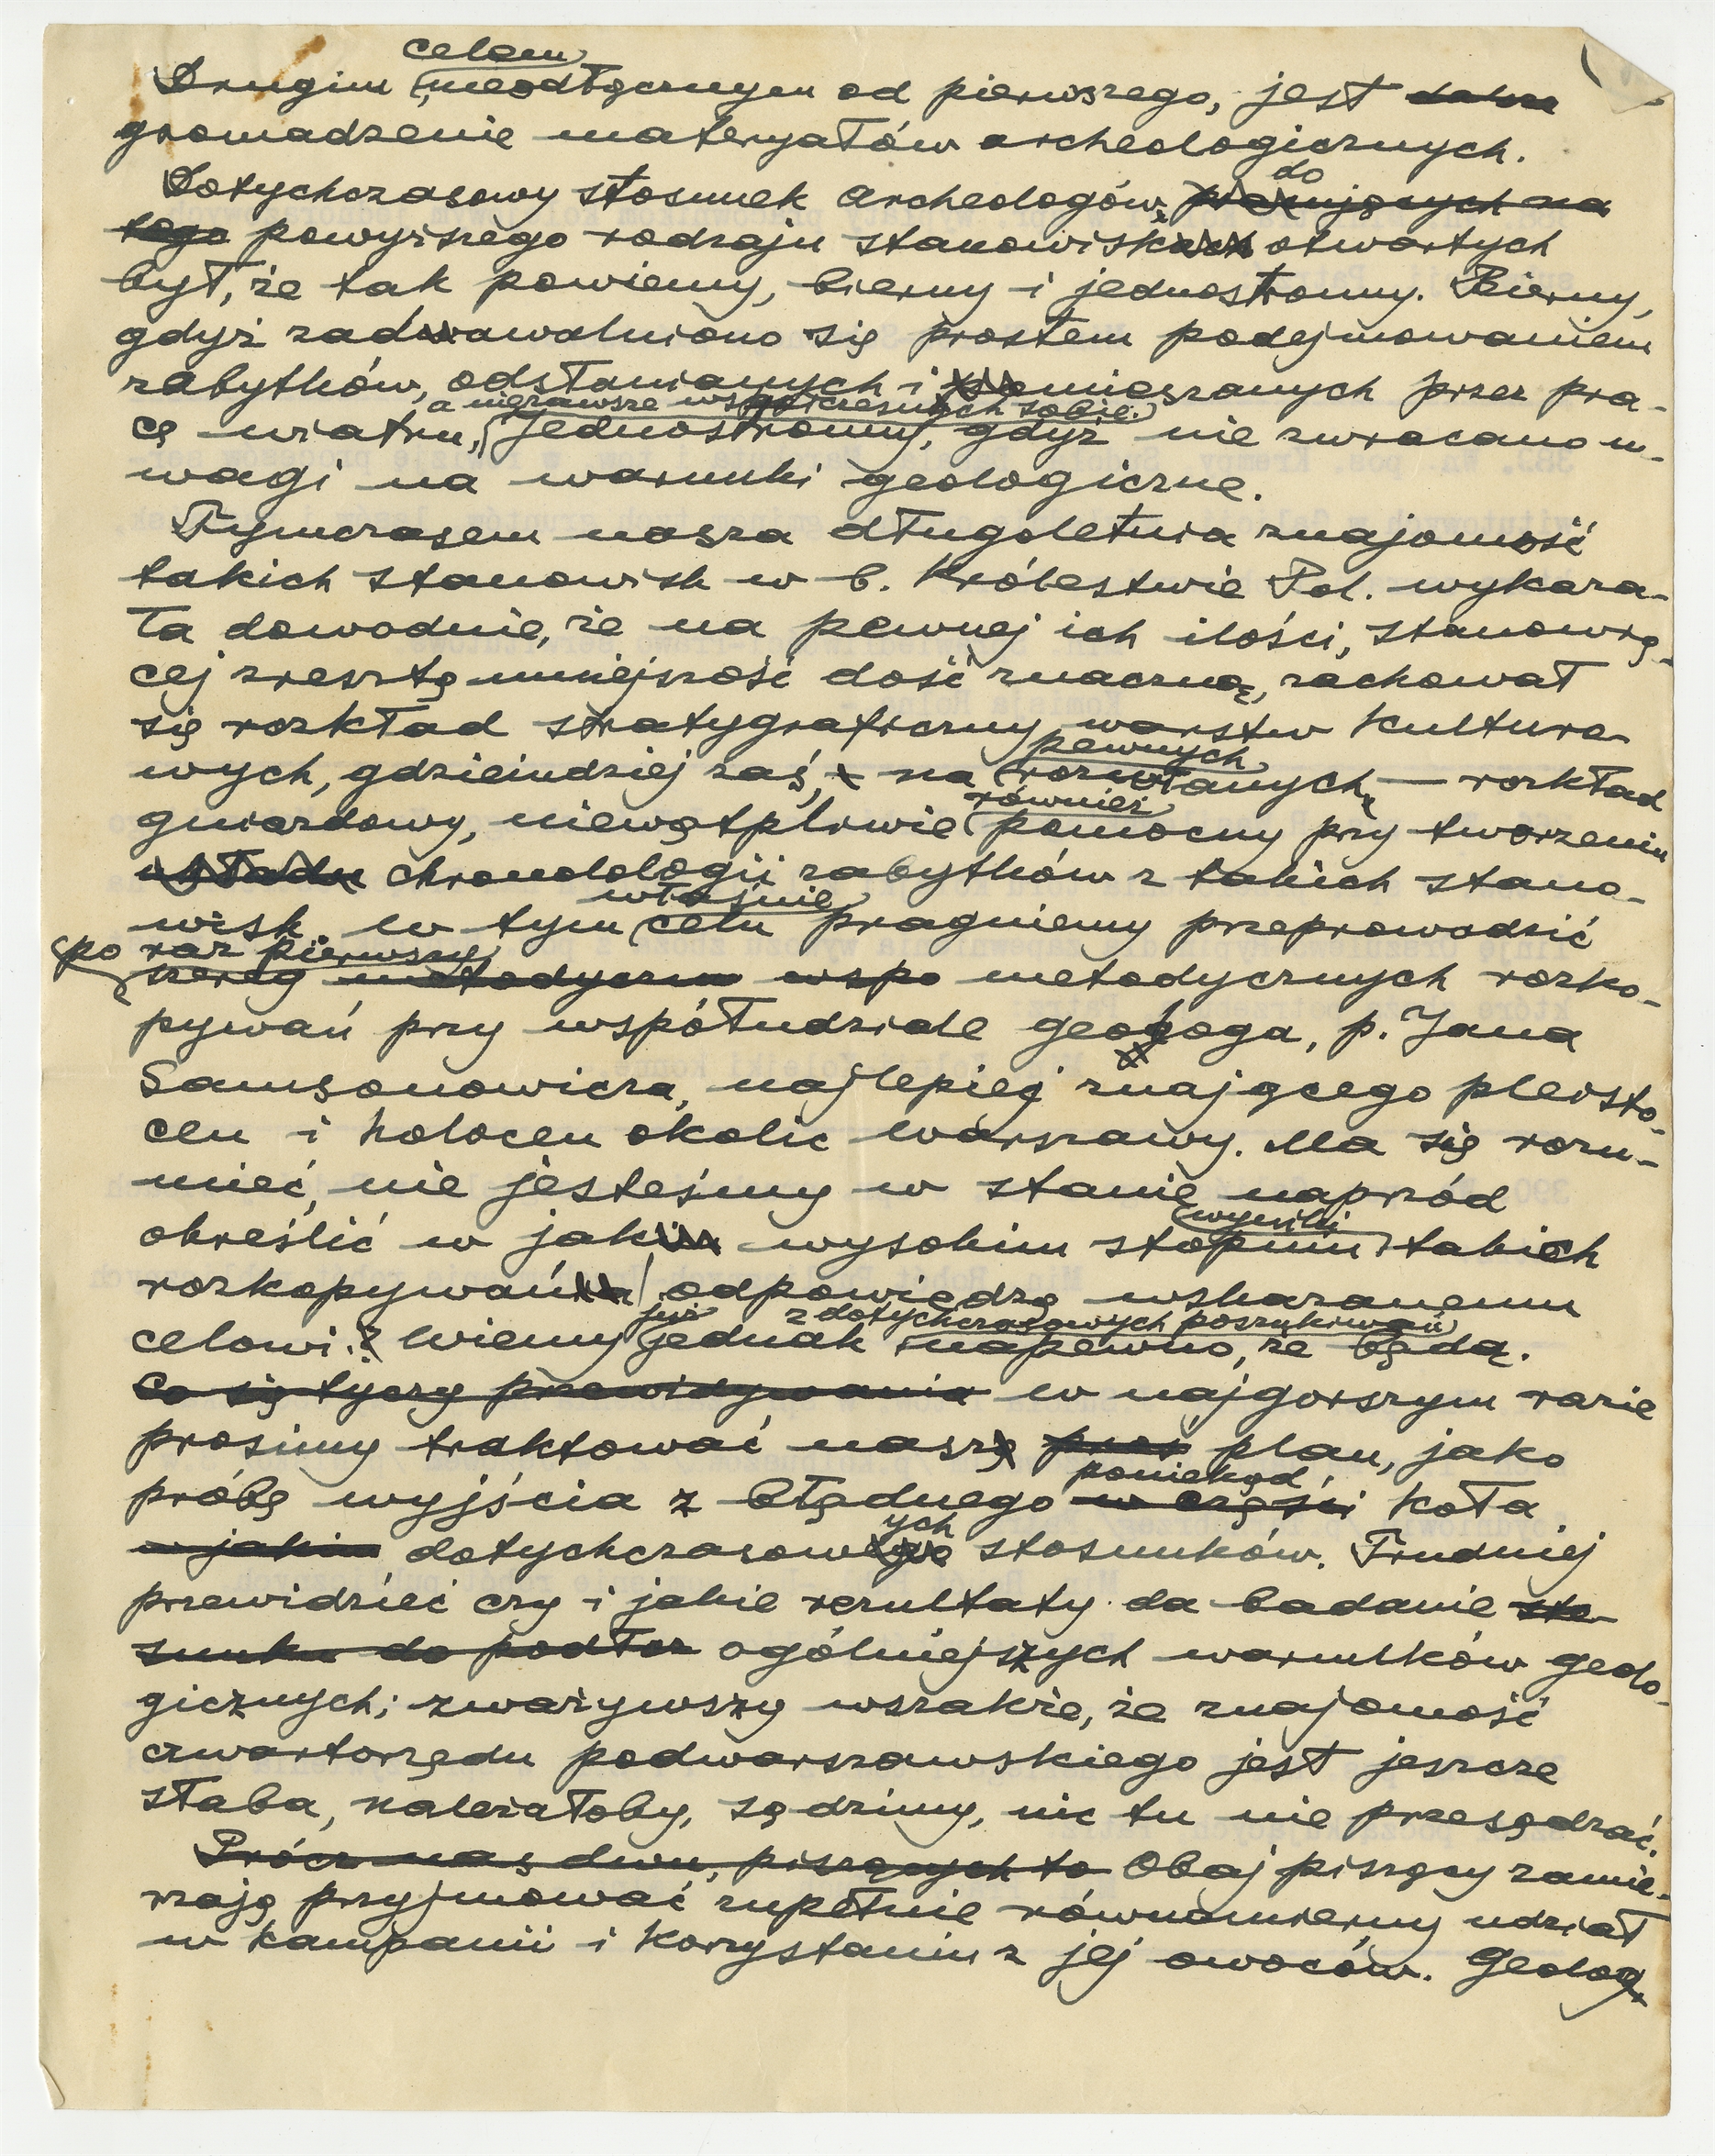 celem
Drugim nieodłącznym od pierwszego, jest dalsze
gromadzenie materyałów archeologicznych.
do
Dotychczasowy stosunek archeologów, pracujących na
tego powyższego rodzaju stanowiskach otwartych
był, że tak powiemy, bierny i jednostronny. Bierny,
gdyż zadawalniono się prostem podejmowaniem
zabytków, odsłanianych i pomieszanych przez pra-
a niezawsze współczesnych sobie.
cę wiatru, jednostronny, gdyż nie zwracano u-
wagi na warunki geologiczne.
Tymczasem nasza długoletnia znajomość
takich stanowisk w b. Królestwie Pol. wykaza-
ła dowodnie, że na pewnej ich ilości, stanowią-
cej zresztą mniejszość dość znaczną, zachował
się rozkład stratygraficzny warstw kulturo-
pewnych
wych, gdzieindziej zaś, na rozwianych, — rozkład
również
gniazdowy, niewątpliwie pomocny przy tworzeniu
układu chronologii zabytków z takich stano-
właśnie
wisk. W tym celu pragniemy przeprowadzić
po raz pierwszy
szereg metodyczn wspo metodycznych rozko-
pywań przy współudziale geologa, p. Jana
Samsonowicza, najlepiej znającego plejsto-
cen i holocen okolic Warszawy. Ma się rozu-
mieć, nie jesteśmy w stanie naprzód
wyniki
określić w jak wysokim stopniu takich
rozkopywań odpowiedzą wskazanemu
już z dotychczasowych poszukiwań
celowi. Wiemy jednak napewno, że będą.
Co się tyczy przewidywania W najgorszym razie
prosimy traktować nasz plan, jako
poniekąd
próbę wyjścia z błędnego w części koła
ych
w jakim dotychczasowego stosunków. Trudniej
przewidzieć czy i jakie rezultaty da badanie sto-
sunku do podłoż ogólniejszych warunków geolo-
gicznych; zważywszy wszakże, że znajomość
czwartorzędu podwarszawskiego jest jeszcze
słaba, należałoby, sądzimy, nic tu nie przesądzać.
Prócz nas dwu, piszących to Obaj piszący zamie-
rzają przyjmować zupełnie równomierny udział
w kampanii i korzystaniu z jej owoców. Geolog,